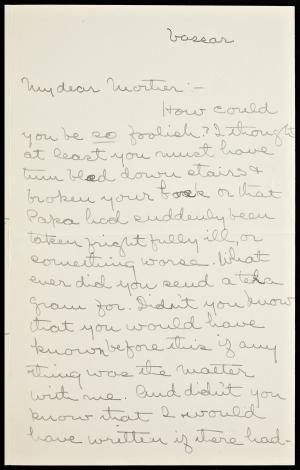 Vassar
My dear Mother:-
How could
you be so foolish? I thought
at least you must have
down stairs &
broken your or that
Papa had suddenly been
taken frightfully ill, or
something worse. What
ever did you send a tele
gram for. Didn't you know
that you would have
known before this if any
thing was the matter
with me. And didn't you
know that I would
have written if there had-